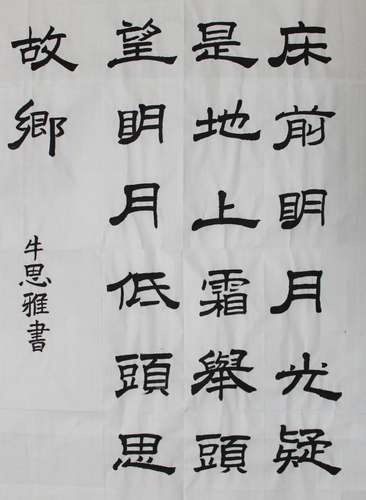 床前明月光疑
是地上霜舉頭
望明月低頭思
故鄉
牛思雅書